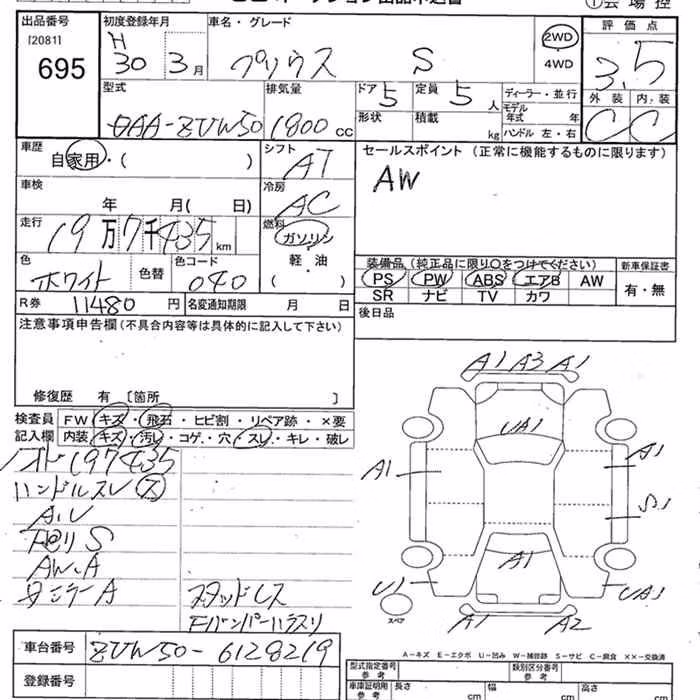 ①会場控
出品番号 初度登録年月 車名・グレード 評価点
[2081] H 2WD
695 30 3月 プリウス S 4WD 3.5
型式 排気量 ドア 定員 ディーラー・並行 外装 内装
DAA-ZVW50 1800cc 5 5人 モデル年式 年 C C
形状 積載 kg ハンドル 左・右
車歴 シフト セールスポイント (正常に機能するものに限ります)
自家用・( ) AT AW
車検 冷房
年 月( 日) AC
走行 燃料
19万7千435km ガソリン
色 色替 色コード 軽・油
ホワイト 040 ( )
装備品 (純正品に限り○をつけてください) 新車保証書
PS PW ABS エアB AW 有・無
SR ナビ TV カワ
R券 11480円 名変通知期限 月 日 後日品
注意事項申告欄(不具合内容等は具体的に記入して下さい)
修復歴 有 [箇所 ]
検査員 FW キズ・飛石・ヒビ割・リペア跡・×要
記入欄 内装・キズ・汚レ・コゲ・穴・スレ・キレ・破レ
197435
ハンドルスレ ス
A.U
下回り S
AW.A
ミラーA スタッドレス
Fバンパーハラスリ
A1 A3 A1
UA1
A1 A1
S1
A1
U1 UA1
スペア A1 A2
A-キズ E-エクボ U-凹み W-補修跡 S-サビ C-腐食 ××-交換済
車台番号 ZVW50-6128219
登録番号
型式指定番号 類別区分番号
参考 参考
車庫証明用 長さ 幅 高さ
参考 cm cm cm